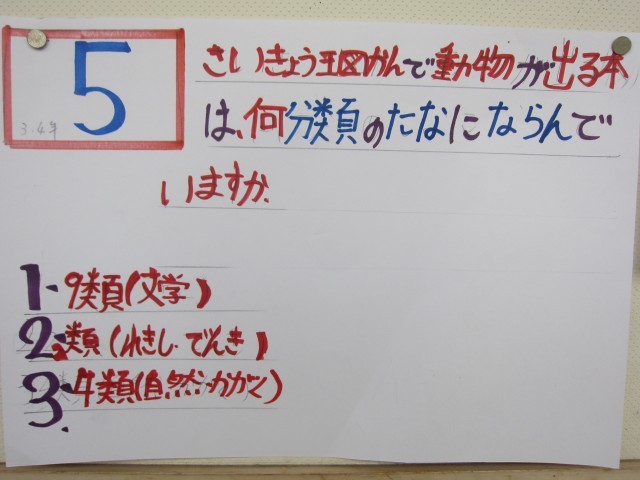 5
3.4年
さいきょう王図かんで動物が出る本
は、何分類のたなにならんで
いますか。
1. 9類(文学)
2. 2類(れきし・でんき)
3. 4類(自然・かがく)